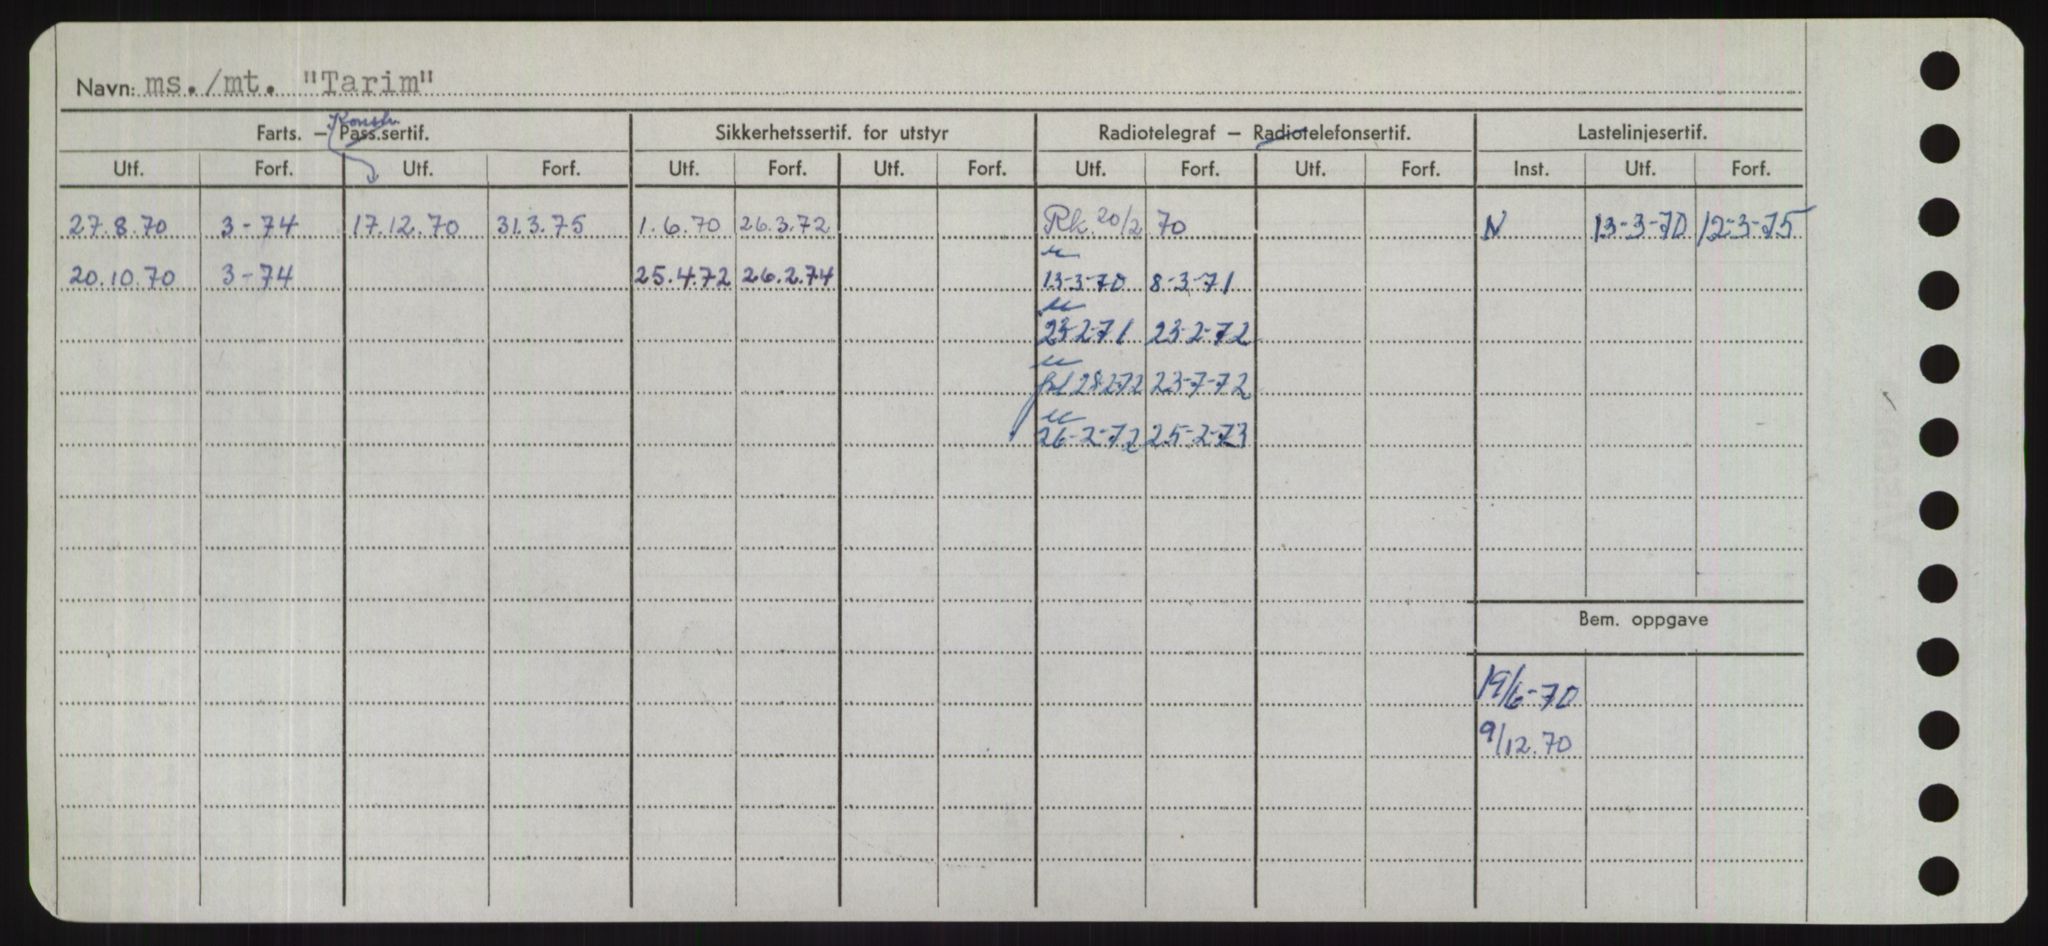 Navn: ms./mt. "Tarim"
Konstr.
Farts. – Pass.sertif. Sikkerhetssertif. for utstyr Radiotelegraf – Radiotelefonsertif. Lastelinjesertif.
Utf. Forf. Utf. Forf. Utf. Forf. Utf. Forf. Utf. Forf. Utf. Forf. Inst. Utf. Forf.
27.8.70 3-74 17.12.70 31.3.75 1.6.70 26.3.72 Rk. 20/2 70 N 13-3-70 12-3-75
20.10.70 3-74 25.4.72 26.2.74 13-3-70 8-3-71
23-2-71 23-2-72
28-2-72 23-7-72
26-2-72 25-2-73
Bem. oppgave
19/6-70
9/12.70